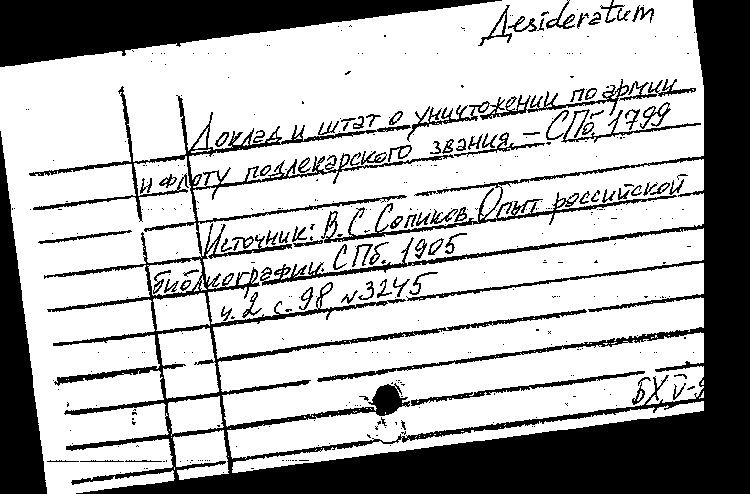 Дesideratum
Доклад и штат о уничтожении по армии
и флоту подлекарского звания. – СПб, 1799
Источник: В. С. Сопиков. Опыт российской
библиографии. СПб, 1905
ч. 2, с. 98, №3245
БХ, V-9